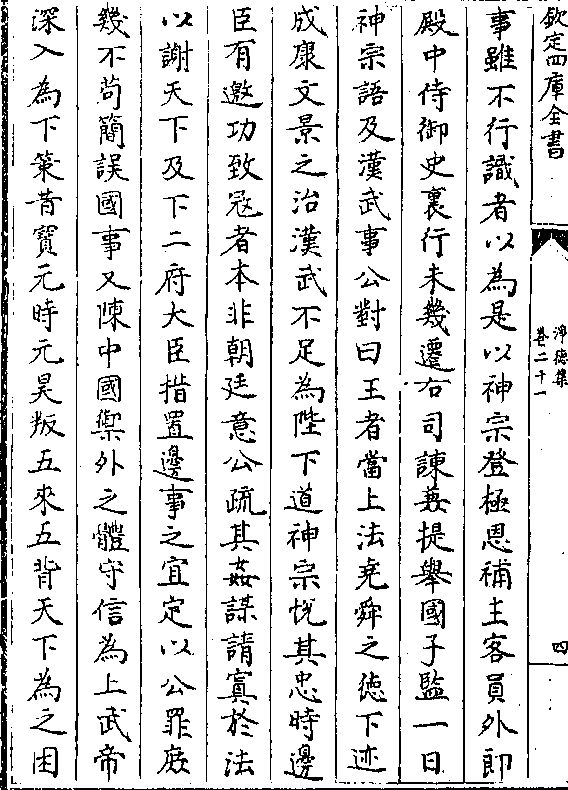 欽定四庫全書
淨德集
卷二十一
四
事雖不行識者以為是以神宗登極恩補主客員外郎
殿中侍御史裏行未幾遷右司諫兼提舉國子監一日
神宗語及漢武事公對曰王者當上法堯舜之德下迹
成康文景之治漢武不足為陛下道神宗悅其忠時邊
臣有邀功致寇者本非朝廷意公疏其姦謀請寘於法
以謝天下及下二府大臣措置邊事之宜定以公罪庶
幾不苟簡誤國事又陳中國禦外之體守信為上武帝
深入為下策昔寶元時元昊叛五來五背天下為之困